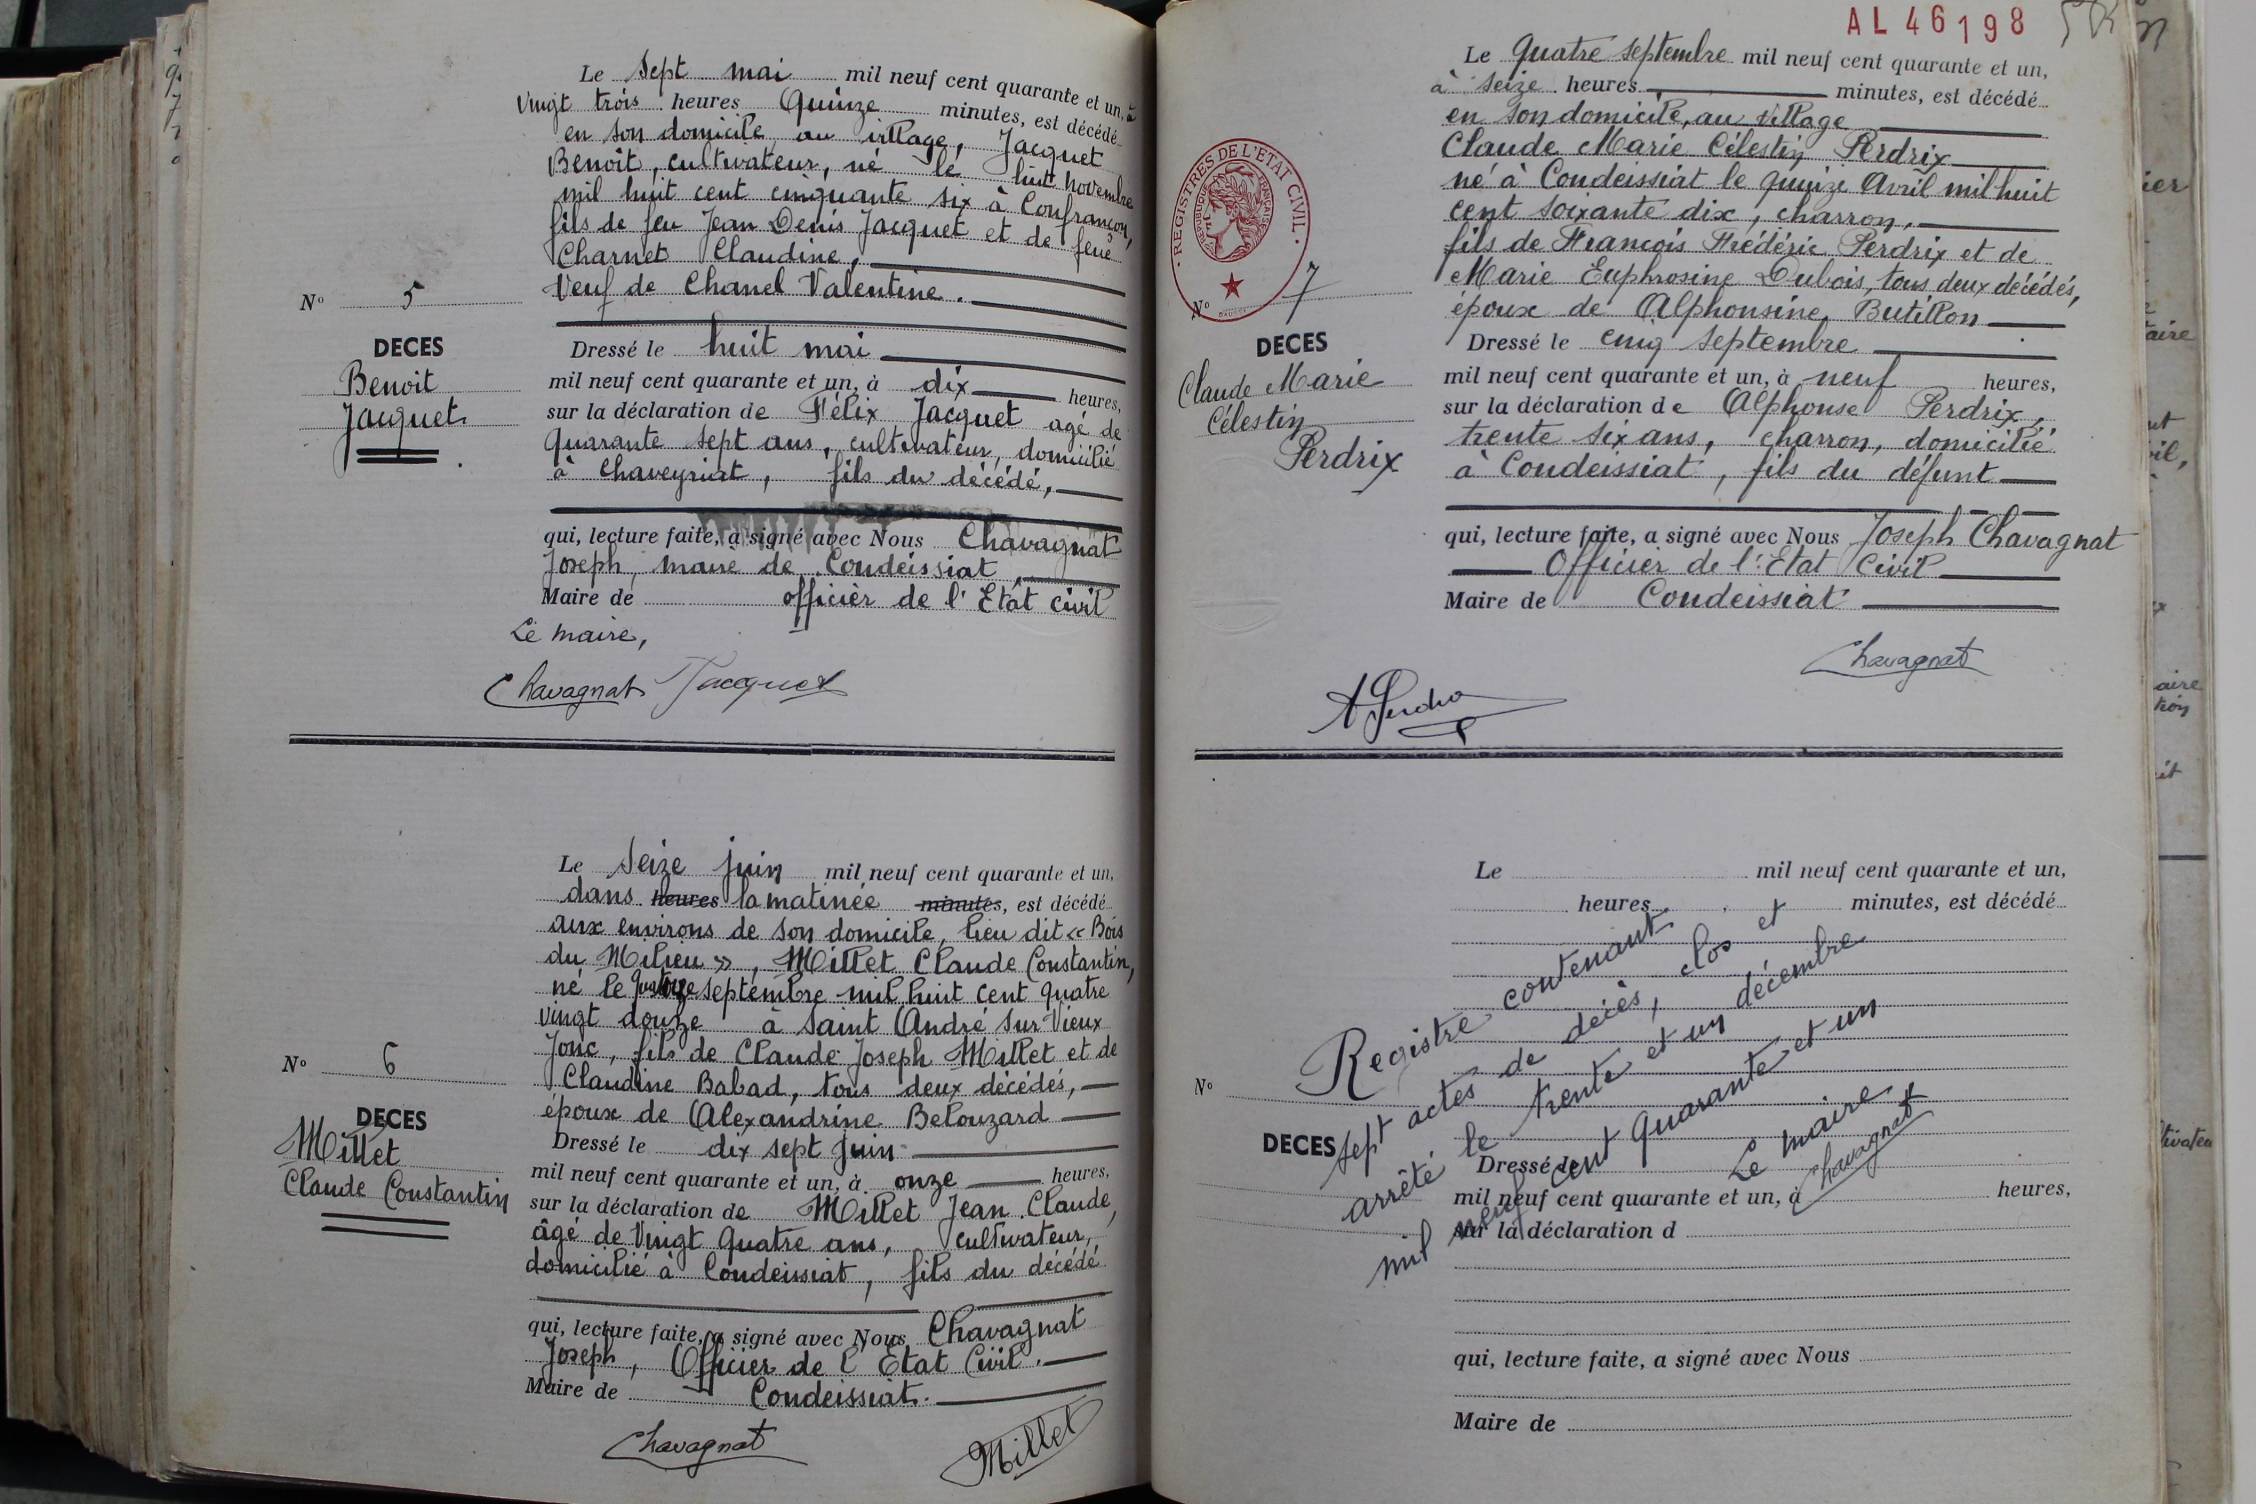 Le Sept mai mil neuf cent quarante et un, à
Vingt trois heures Quinze minutes, est décédé
en son domicile au village, Jacquet
Benoit, cultivateur, né le huit novembre
mil huit cent cinquante six à Confrançon,
fils de feu Jean Denis Jacquet et de feue
Charnet Claudine,
Veuf de Chanel Valentine.
No 5
DECES
Benoit
Jacquet
Dressé le huit mai
mil neuf cent quarante et un, à dix heures,
sur la déclaration de Félix Jacquet agé de
quarante sept ans, cultivateur, domicilié
à Chaveyriat, fils du décédé,
qui, lecture faite, a signé avec Nous Chavagnat
Joseph, maire de Condeissiat
Maire de officier de l'Etat civil
Le maire,
Chavagnat Jacquet
Le Seize juin mil neuf cent quarante et un,
dans heures la matinée minutes, est décédé
aux environs de son domicile, lieu dit « Bois
du Milieu », Millet Claude Constantin,
né le septembre mil huit cent quatre
vingt douze à Saint André sur Vieux
Jonc, fils de Claude Joseph Millet et de
Claudine Babad, tous deux décédés,
époux de Alexandrine Belouzard
No 6
DECES
Millet
Claude Constantin
Dressé le dix sept juin
mil neuf cent quarante et un, à onze heures,
sur la déclaration de Millet Jean Claude,
âgé de Vingt quatre ans, cultivateur,
domicilié à Condeissiat, fils du décédé
qui, lecture faite, a signé avec Nous Chavagnat
Joseph, Officier de l'Etat Civil.
Maire de Condeissiat.
Chavagnat Millet
AL 46198
Le quatre septembre mil neuf cent quarante et un,
à seize heures minutes, est décédé
en son domicile, au village
Claude Marie Célestin Perdrix
né à Condeissiat le quinze Avril mil huit
cent soixante dix, charron,
fils de François Frédéric Perdrix et de
Marie Euphrosine Dubois, tous deux décédés,
époux de Alphonsine Butillon
REGISTRES DE L'ETAT CIVIL
REPUBLIQUE FRANÇAISE
No 7
DECES
Claude Marie
Célestin
Perdrix
Dressé le cinq septembre
mil neuf cent quarante et un, à neuf heures,
sur la déclaration de Alphonse Perdrix,
trente six ans, charron, domicilié
à Condeissiat, fils du défunt
qui, lecture faite, a signé avec Nous Joseph Chavagnat
Officier de l'Etat Civil
Maire de Condeissiat
Chavagnat
Le mil neuf cent quarante et un,
heures minutes, est décédé
No
DECES
Dressé le
mil neuf cent quarante et un, à heures,
sur la déclaration d
qui, lecture faite, a signé avec Nous
Maire de
Registre contenant
sept actes de décès, clos et
arrêté le trente et un décembre
mil neuf cent quarante et un
Le maire
Chavagnat